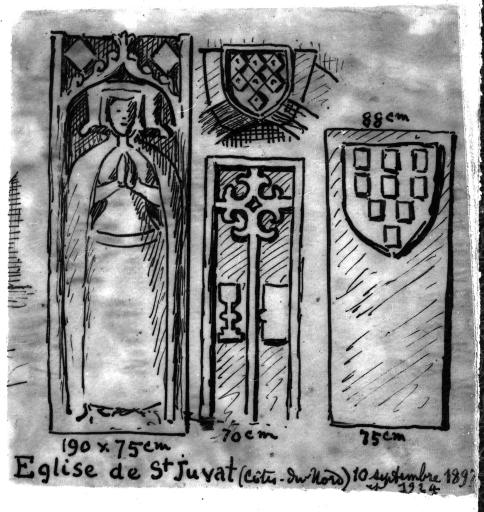 88 cm
190 x 75 cm
70 cm
75 cm
Eglise de St Juvat (Côtes-du-Nord) 10 septembre 189
et 1924